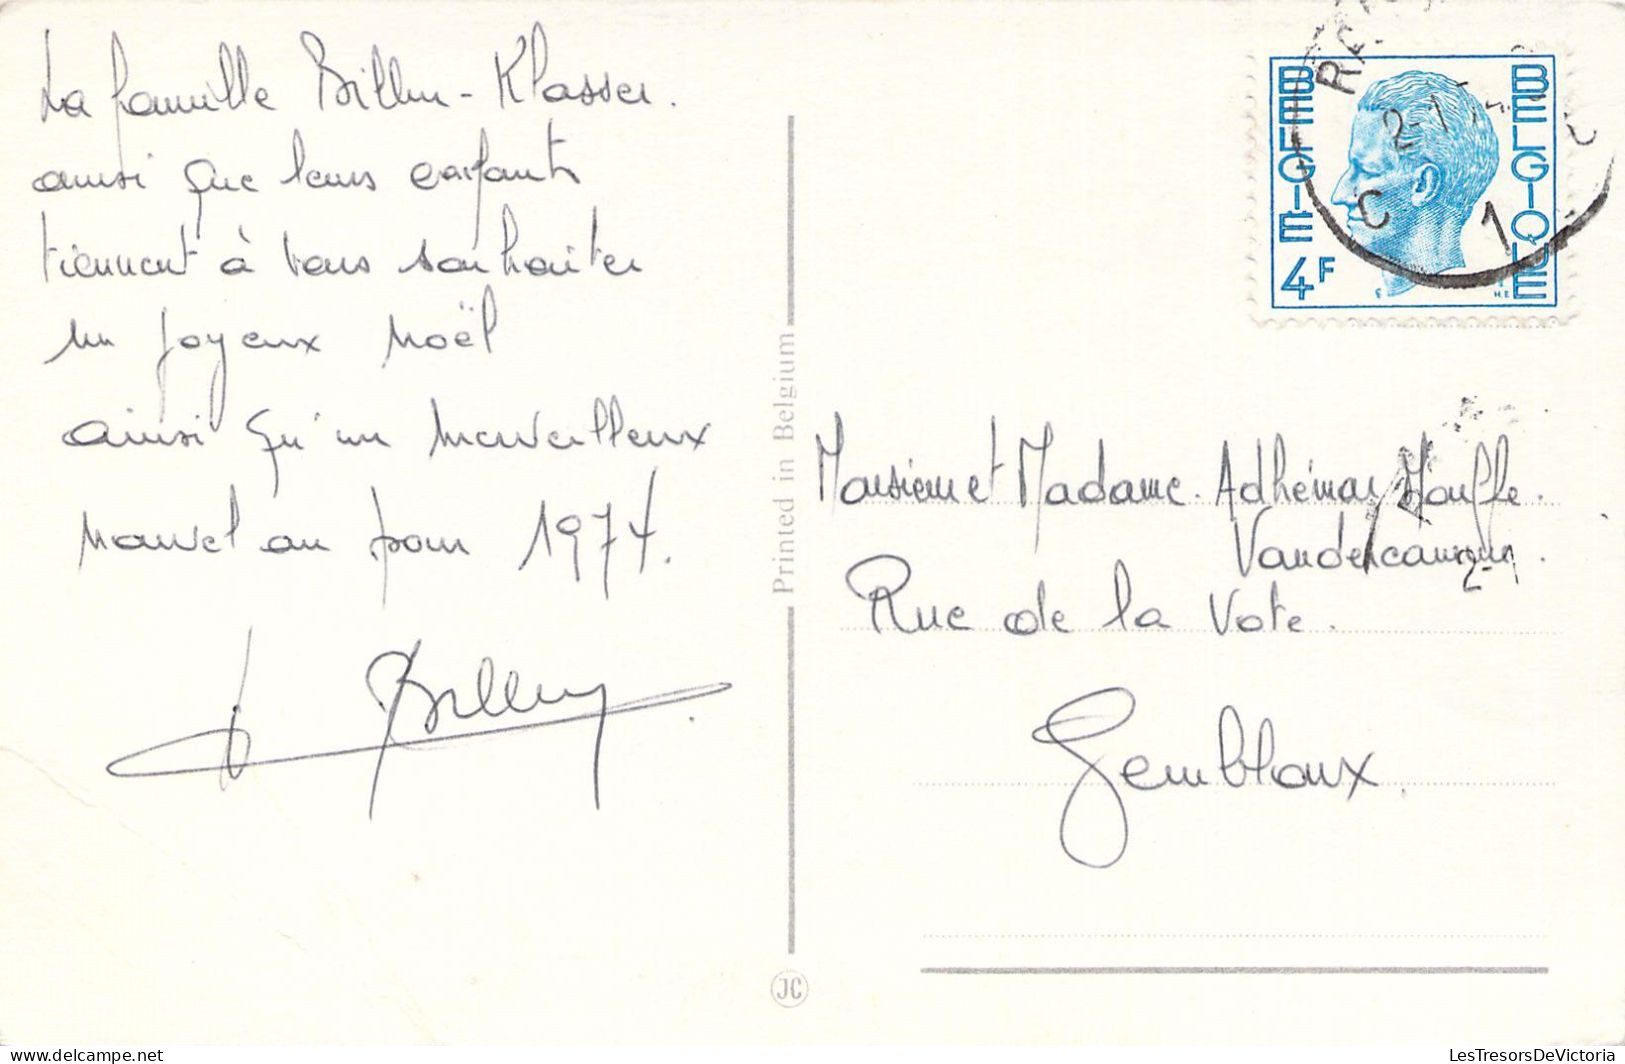 La famille Billen - Klasser.
ainsi que leurs enfants
tiennent à vous souhaiter
un joyeux Noël
ainsi qu'un merveilleux
nouvel an pour 1974.
Printed in Belgium
JC
BELGIE
BELGIQUE
4F
C 1
Monsieur et Madame. Adhémar Houffe.
Rue de la Vote.
Gembloux.
LesTresorsDeVictoria
www.delcampe.net